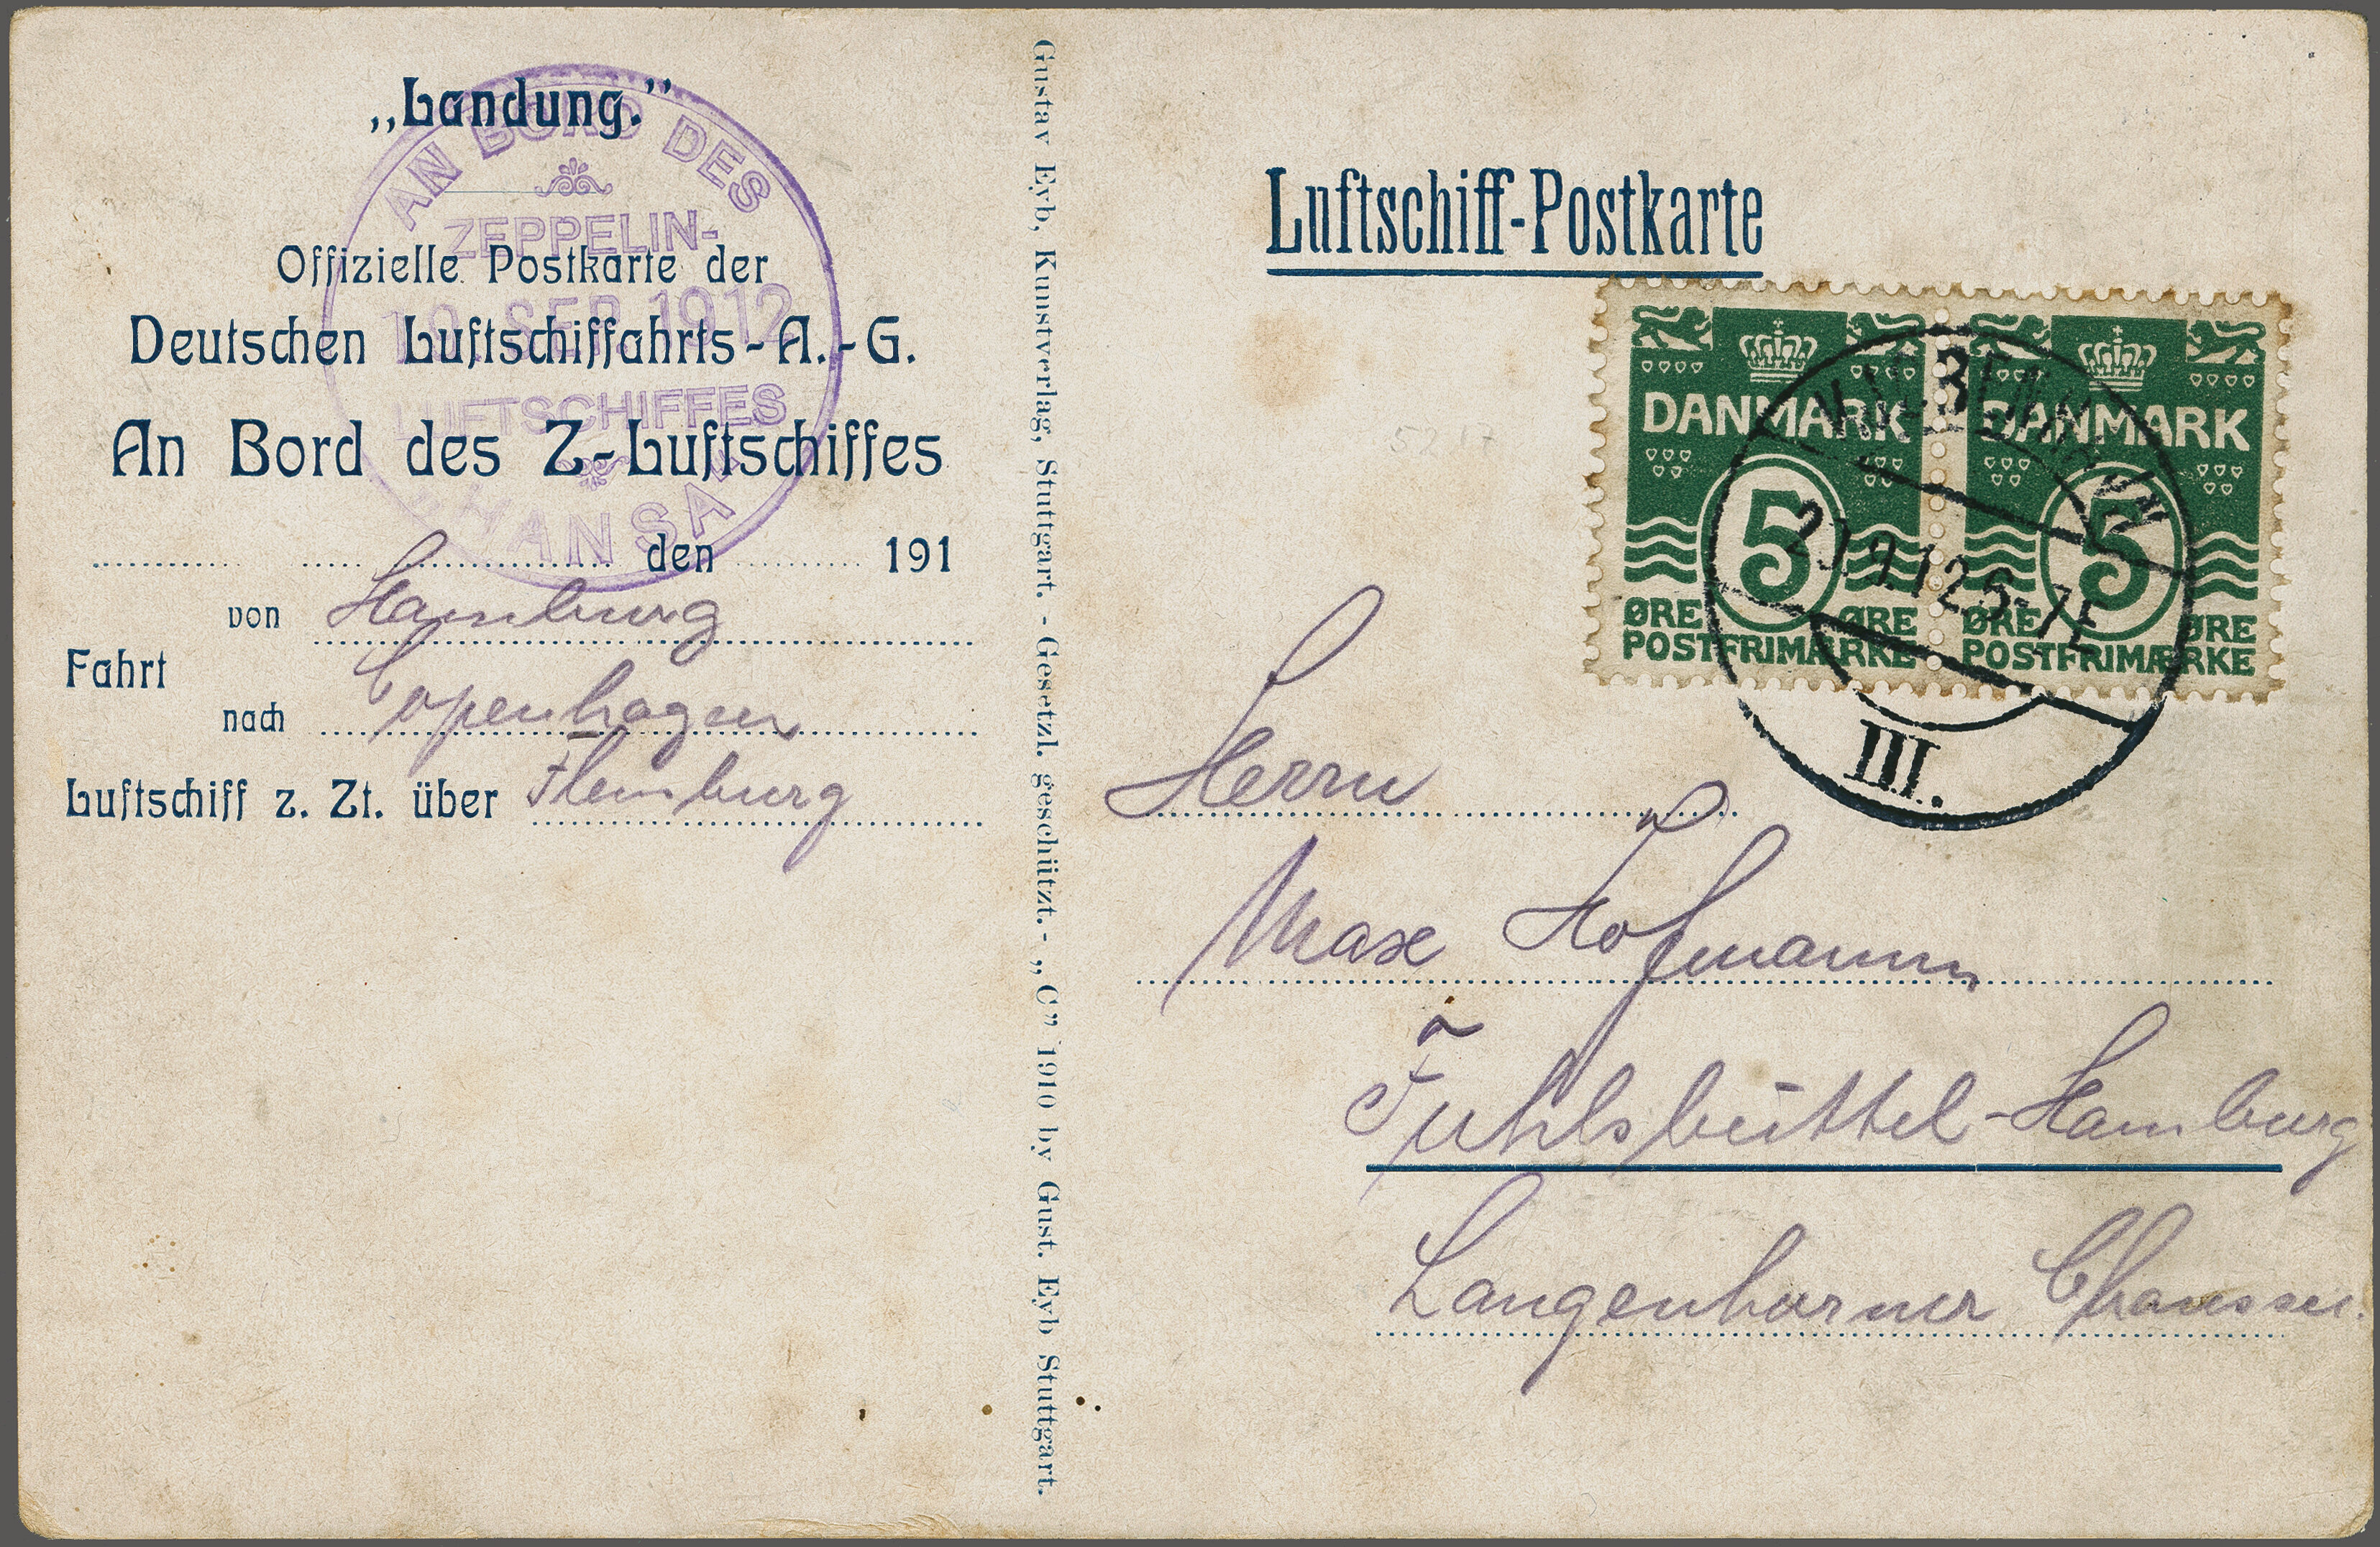 „Landung.”
AN BORD DES
ZEPPELIN-
19. SEP. 1912
LUFTSCHIFFES
„HANSA”
Offizielle Postkarte der
Deutschen Luftschiffahrts-A.-G.
An Bord des Z-Luftschiffes
den 191
Fahrt
von Hamburg
nach Copenhagen
Luftschiff z. Zt. über Flensburg
Gustav Eyb, Kunstverlag, Stuttgart. - Gesetzl. geschützt. - „C” 1910 by Gust. Eyb Stuttgart.
Luftschiff-Postkarte
DANMARK
5
ØRE ØRE
POSTFRIMÆRKE
DANMARK
5
ØRE ØRE
POSTFRIMÆRKE
9.12 6-7E
III.
Herrn
Max Hofmann
Fuhlsbüttel-Hamburg
Langenhorner Chaussee.